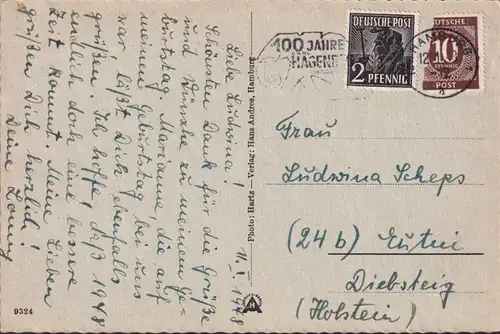 Liebe Ludwina!
Schönsten Dank für die Grüße
und Wünsche zu meinem Ge-
burtstag. Marianne, die auf
meinem Geburtstag bei uns
war läßt Dich ebenfalls
grüßen. Ich hoffe, daß 1948
endlich doch eine bessere
Zeit kommt. Meine Lieben
grüßen Dich herzlich!
Deine Lonny
11. I. 1948
9324
Photo: Hartz – Verlag: Hans Andres, Hamburg
100 JAHRE
CARL
HAGENB
DEUTSCHE POST
2 PFENNIG
DEUTSCHE
10
PFENNIG
POST
HAMBURG
12
Frau
Ludwina Scheps
(24b) Eutin
Diebsteig
(Holstein)